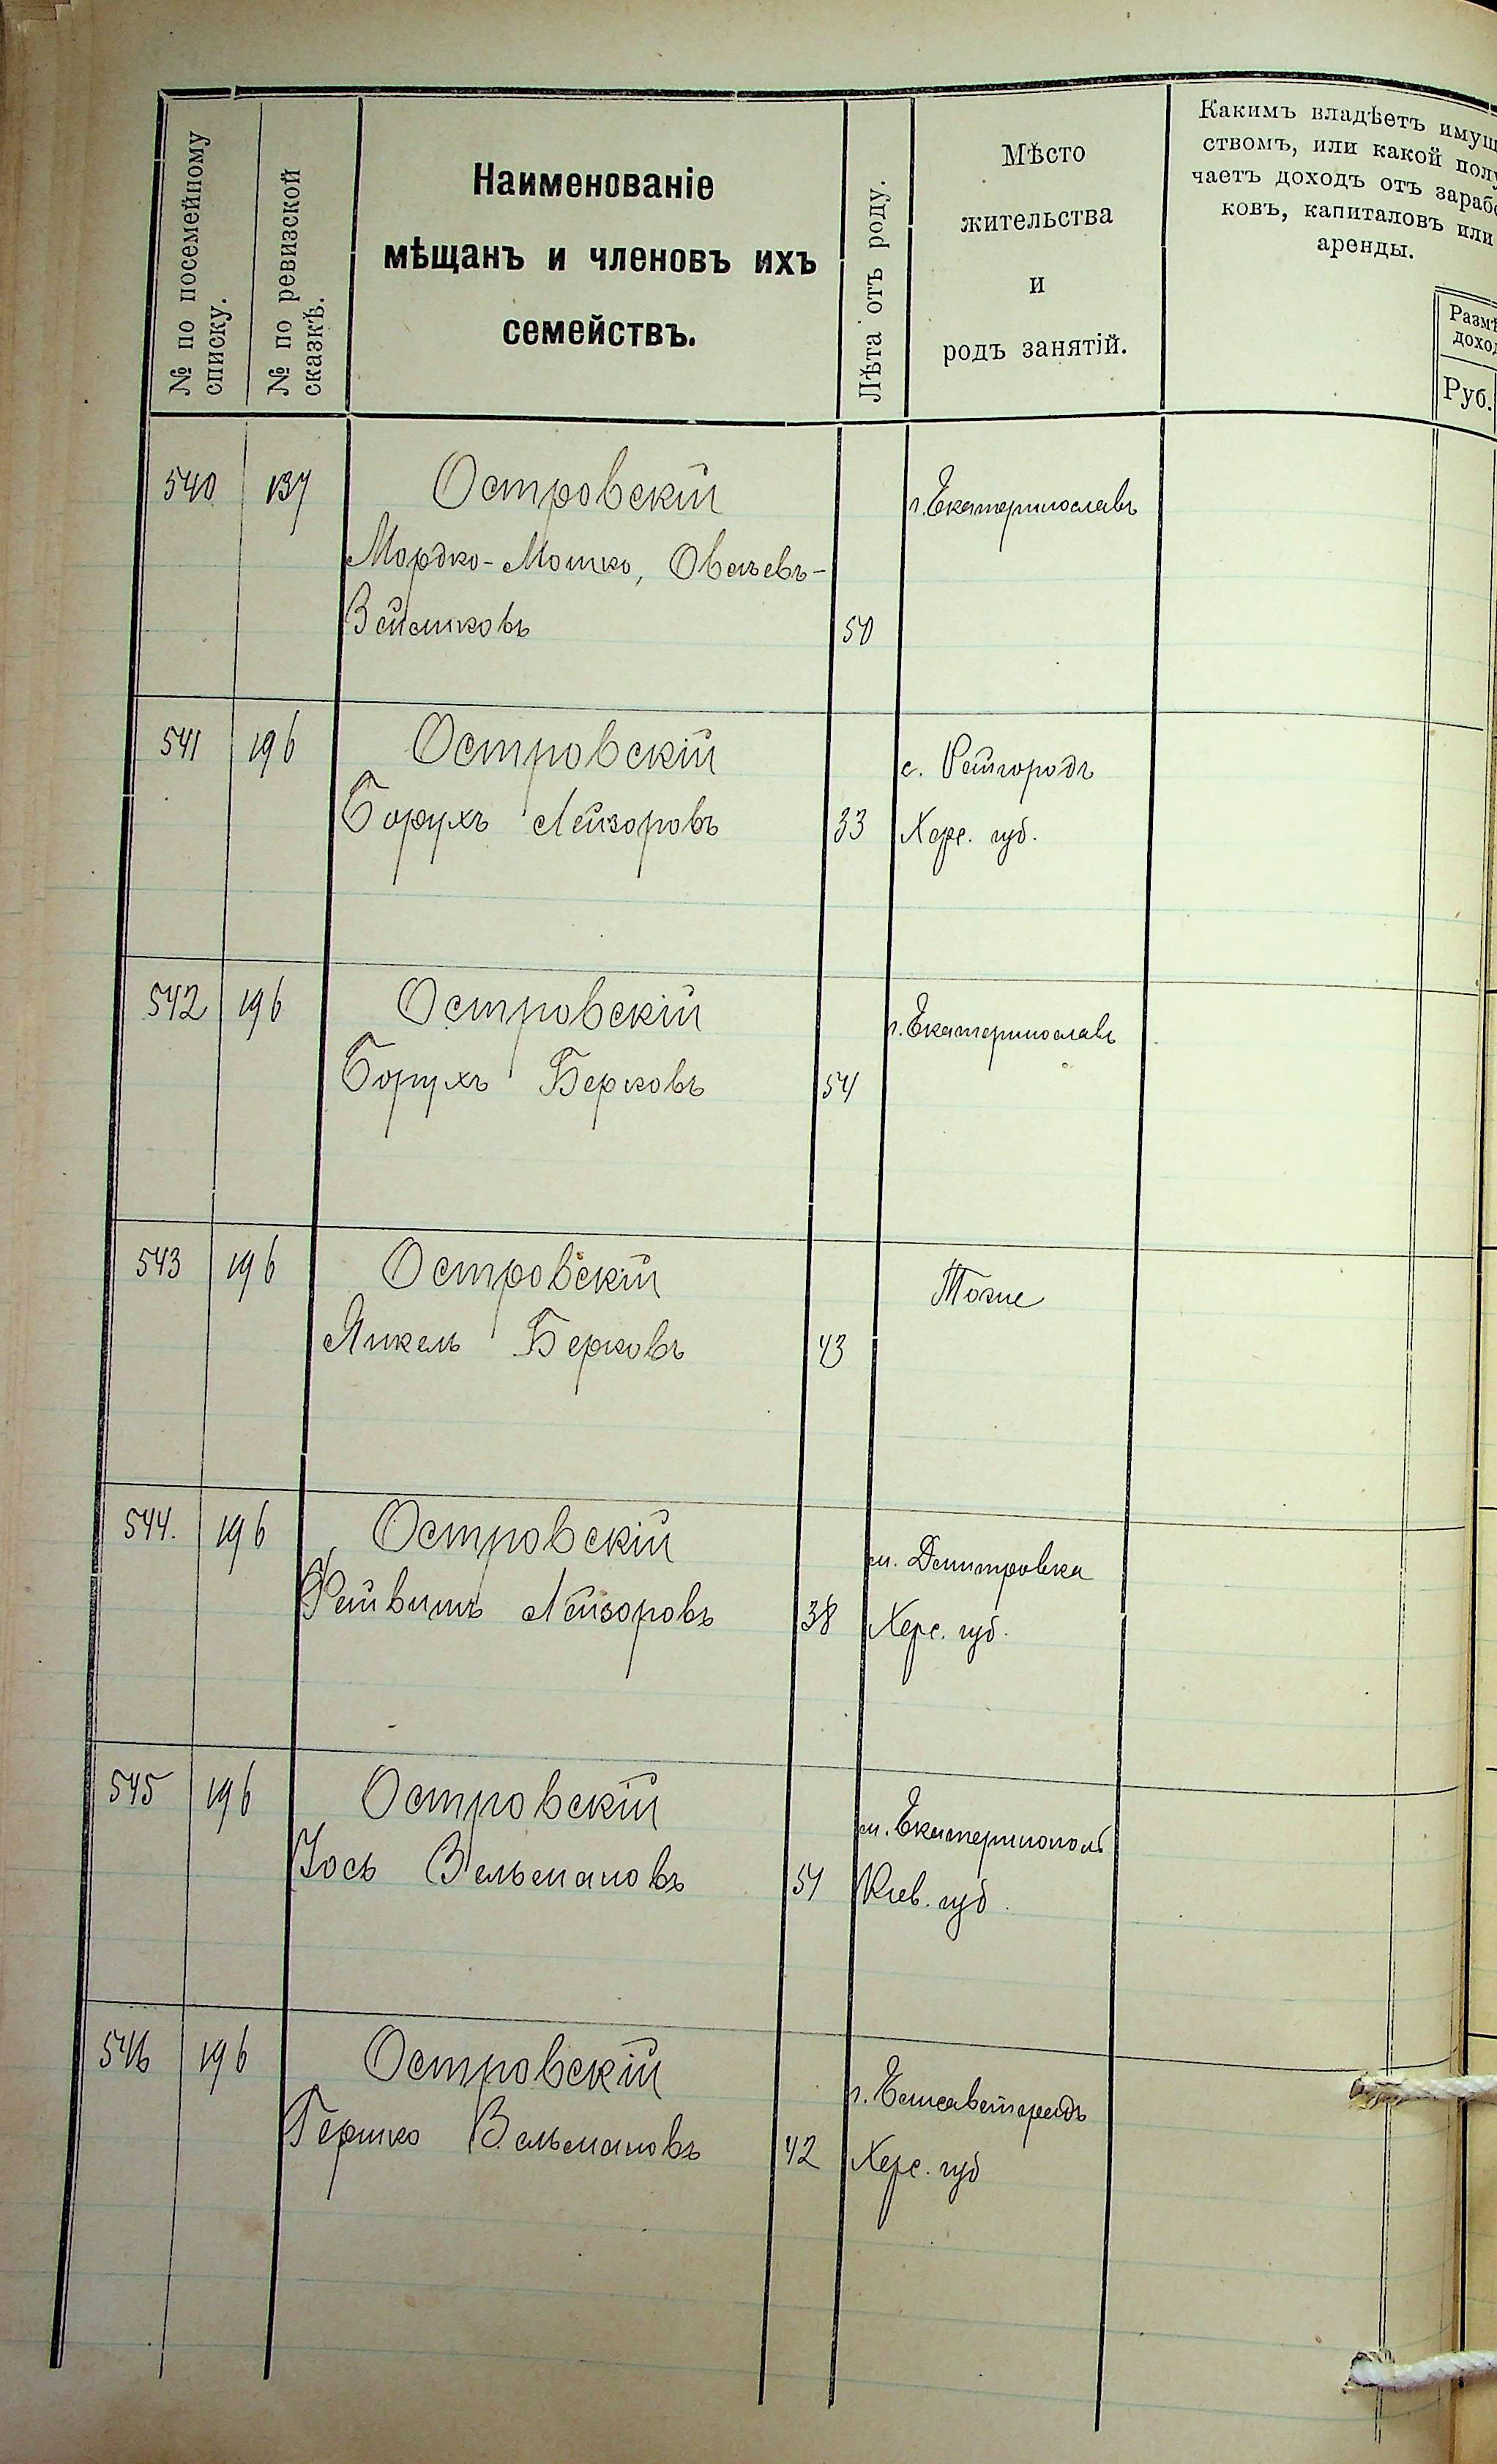 № по посемейному
списку.
№ по ревизской
сказкѣ.
Наименованіе
мѣщанъ и членовъ ихъ
семействъ.
Лѣта отъ роду.
Мѣсто
жительства
и
родъ занятій.
Какимъ владѣетъ имущ
ствомъ, или какой полу
чаетъ доходъ отъ зарабо
ковъ, капиталовъ или
аренды.
Размѣ
доход
Руб.
540 137 Островскій г. Екатеринославъ
Мордко-Мошко, Овсѣевъ-
Зейликовъ 50
541 196 Островскій с.
Борухъ Лейзоровъ 33 Херс. губ.
542 196 Островскій г. Екатеринославъ
Борухъ Берковъ 54
543 196 Островскій Тоже
Янкель Берковъ 43
544. 196 Островскій м. Дмитровка
Фейвишъ Лейзоровъ 38 Херс. губ.
545 196 Островскій м. Екатеринополь
Іось Зельмановъ 51 Кіев. губ.
546 196 Островскій г. Елисаветградъ
Гершко Зельмановъ 42 Херс. губ